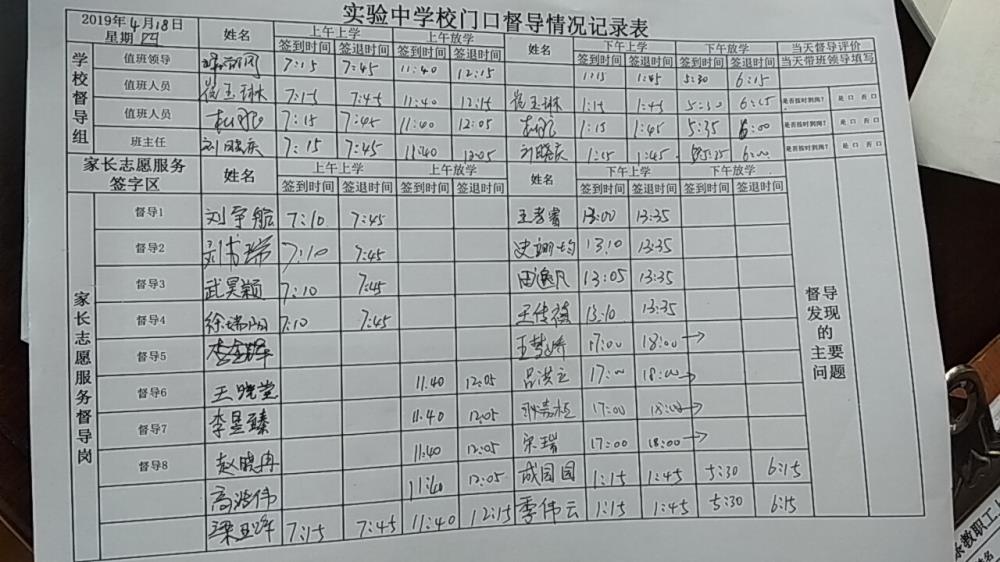 实验中学校门口督导情况记录表
2019年4月18日
星期 四
姓名 上午上学 上午放学 姓名 下午上学 下午放学 当天督导评价
签到时间 签退时间 签到时间 签退时间 签到时间 签退时间 签到时间 签退时间 当天带班领导填写
学校督导组
值班领导 7:15 7:45 11:40 12:15 1:15 1:45 5:30 6:15
值班人员 崔玉琳 7:15 7:45 11:40 12:15 崔玉琳 1:15 1:45 5:30 6:15 是否按时到岗? 是口 否口
值班人员 7:15 7:45 11:40 12:05 1:15 1:45 5:35 6:00 是否按时到岗? 是口 否口
班主任 刘晓庆 7:15 7:45 11:40 12:05 刘晓庆 1:15 1:45 5:35 6:00 是否按时到岗? 是口 否口
家长志愿服务签字区 姓名 上午上学 上午放学 姓名 下午上学 下午放学
签到时间 签退时间 签到时间 签退时间 签到时间 签退时间 签到时间 签退时间
家长志愿服务督导岗
督导1 刘宇航 7:10 7:45 王孝睿 13:00 13:35
督导2 7:10 7:45 13:10 13:35
督导3 武昊颖 7:10 7:45 田逸凡 13:05 13:35
督导4 徐瑞阳 7:10 7:45 王传禛 13:10 13:35
督导5 李金辉 王梦娇 17:00 18:00→
督导6 王晓堂 11:40 12:05 吕洪立 17:00 18:00→
督导7 李星臻 11:40 12:05 17:00 18:00→
督导8 赵晓冉 11:40 12:05 宋瑞 17:00 18:00→
高浩伟 11:40 12:05 成园园 1:15 1:45 5:30 6:15
梁卫华 7:15 7:45 11:40 12:15 季伟云 1:15 1:45 5:30 6:15
督导发现的主要问题
教职工